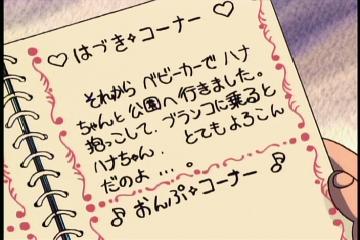 ♡はづき✧コーナー♡
それから ベビーカーで ハナ
ちゃんと 公園へ行きました。
抱っこして、ブランコに乗ると
ハナちゃん、とてもよろこん
だのよ…。
♪おんぷ✧コーナー♪